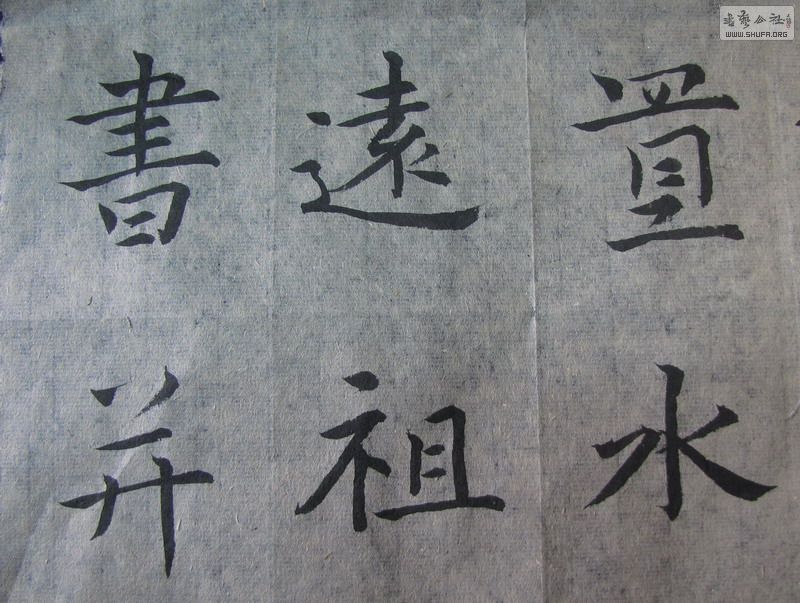 置水
遠祖
書并
書藝公社
WWW.SHUFA.ORG